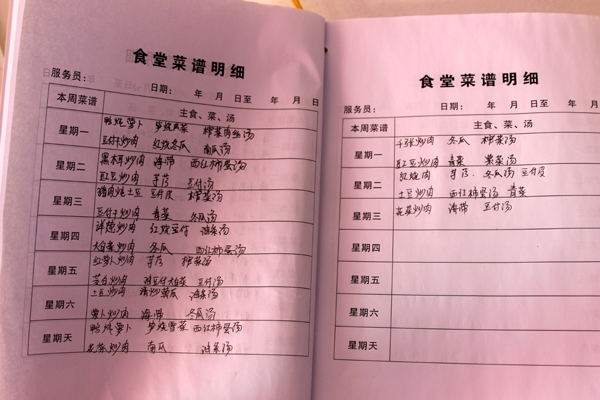 食堂菜谱明细
服务员： 日期： 年 月 日至 年 月 日
本周菜谱 主食、菜、汤
星期一 鸭烧萝卜 榨菜肉丝汤
豆干炒肉 红烧冬瓜 南瓜汤
星期二 黑木耳炒肉 海带 西红柿蛋汤
豇豆炒肉 芽菇 豆付汤
星期三 猪肉炖土豆 豆付皮 榨菜汤
豆付干炒肉 青菜 冬瓜汤
星期四 洋葱炒肉 红烧豆付 油菜汤
大白菜炒肉 冬瓜 西红柿蛋汤
星期五 红萝卜炒肉 芽菇 榨菜汤
大白菜 豆付汤
星期六 土豆炒肉 清炒黄瓜 油菜汤
萝卜炒肉 海带 冬瓜汤
星期天 鸭烧萝卜 西红柿蛋汤
花菜炒肉 南瓜 油菜汤
食堂菜谱明细
服务员： 日期： 年 月 日至 年 月
本周菜谱 主食、菜、汤
星期一 千张炒肉 冬瓜 榨菜汤
豇豆炒肉 青菜 黄菜汤
星期二 红烧肉 芽菇 冬瓜汤 豆付皮
土豆炒肉 西红柿蛋汤 青菜
星期三 花菜炒肉 海带 豆付汤
星期四
星期五
星期六
星期天